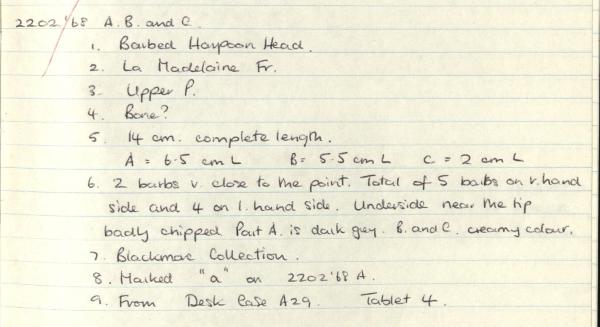 2202'68 A. B. and C.
1. Barbed Harpoon Head.
2. La Madelaine Fr.
3. Upper P.
4. Bone?
5. 14 cm. complete length.
A = 6.5 cm L B = 5.5 cm L C = 2 cm L
6. 2 barbs v. close to the point. Total of 5 barbs on r. hand
side and 4 on l. hand side. Underside near the tip
badly chipped. Part A. is dark grey. B. and C. creamy colour.
7. Blackmore Collection.
8. Marked "a" on 2202'68 A.
9. From Desk Case A29. Tablet 4.